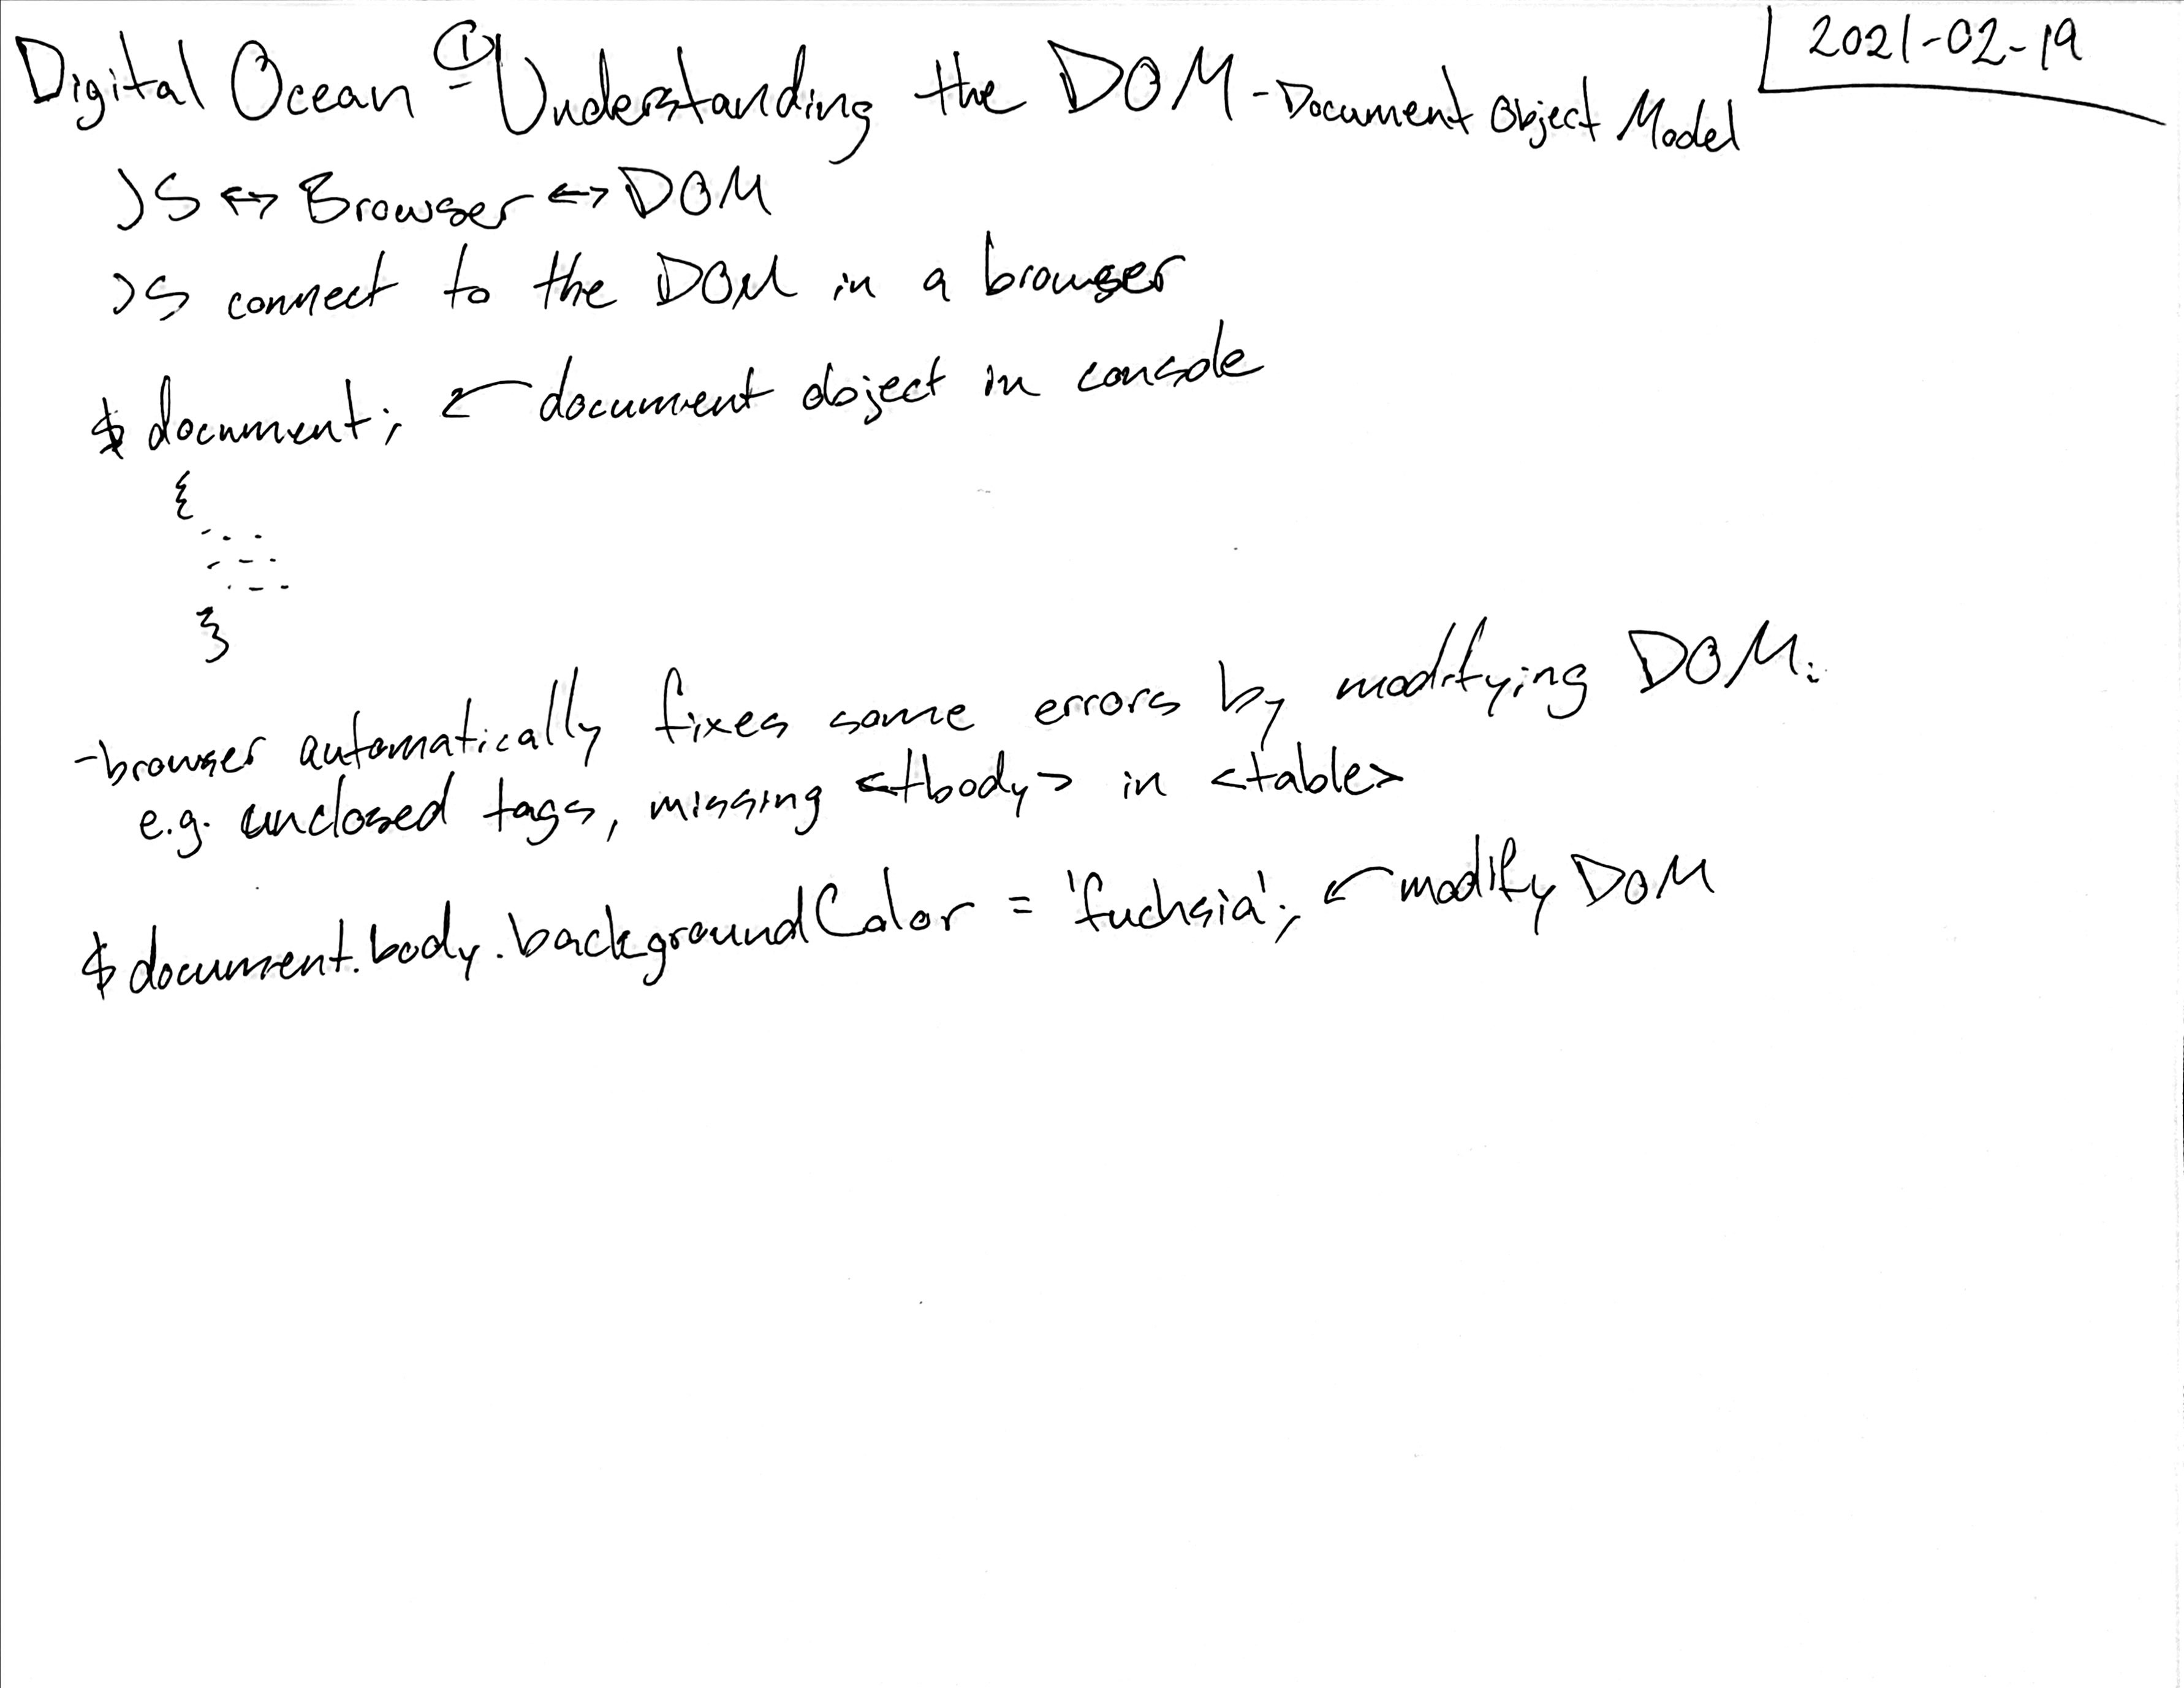 Digital Ocean ① - Understanding the DOM - Document Object Model
2021-02-19
JS ↔ Browser ↔ DOM
JS connect to the DOM in a browser
$ document; ← document object in console
{
...
...
...
}
- browser automatically fixes some errors by modifying DOM:
e.g. unclosed tags, missing <tbody> in <table>
$ document.body.backgroundColor = 'fuchsia'; ← modify DOM